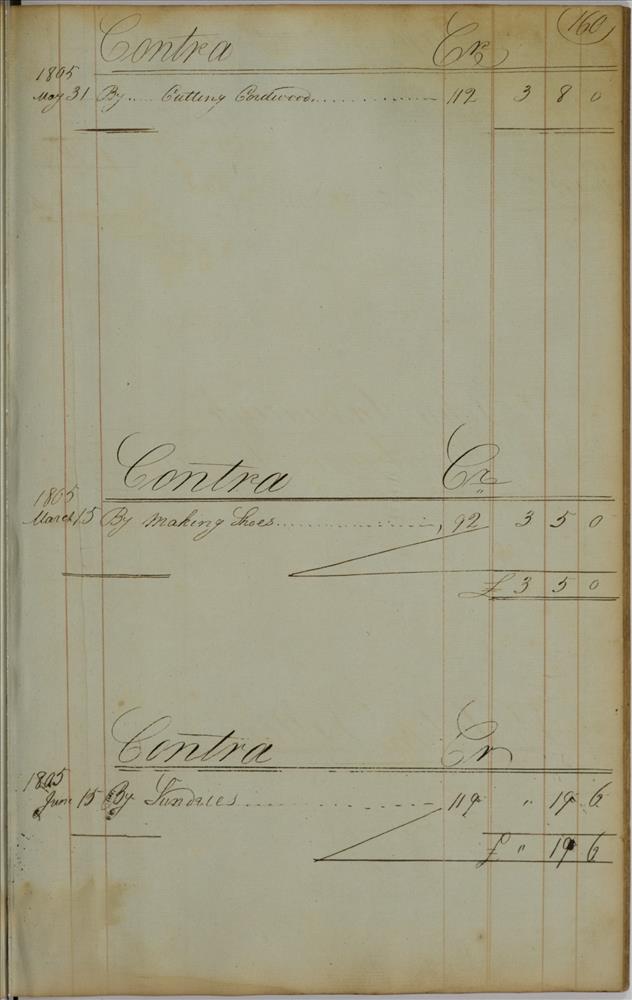 160
Contra Cr
1805
May 31 By .... Cutting Cordwood .............. 112 3 8 0
Contra Cr
1805
March 15 By Making Shoes ................ 92 3 5 0
£ 3 5 0
Contra Cr
1805
June 15 By Sundries .................. 119 " 19 6
£ " 19 6